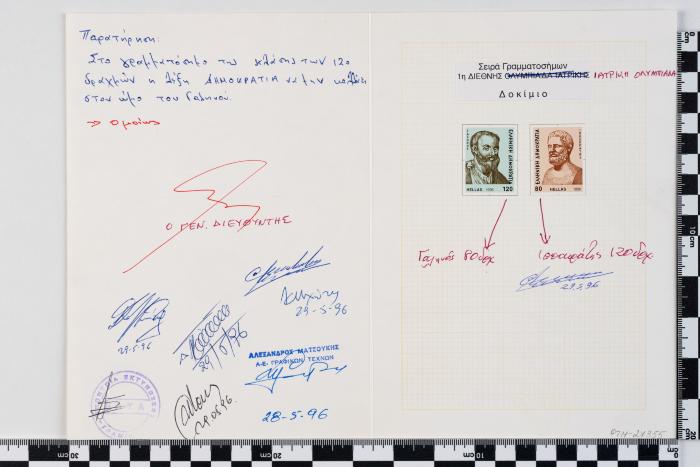 Παρατήρηση:
Στο γραμματόσημο της κλάσης των 120
δραχμών η λέξη ΔΗΜΟΚΡΑΤΙΑ να μην
στον ώμο του Γαληνού.
→ Ομοίως
Ο ΓΕΝ. ΔΙΕΥΘΥΝΤΗΣ
29-5-96
29-5-96
29/5/96
ΑΛΕΞΑΝΔΡΟΣ ΜΑΤΣΟΥΚΗΣ
Α.Ε. ΓΡΑΦΙΚΩΝ ΤΕΧΝΩΝ
28-5-96
Σειρά Γραμματοσήμων
1η ΔΙΕΘΝΗΣ ΟΛΥΜΠΙΑΔΑ ΙΑΤΡΙΚΗΣ ΙΑΤΡΙΚΗ ΟΛΥΜΠΙΑΔΑ
Δοκίμιο
ΕΛΛΗΝΙΚΗ ΔΗΜΟΚΡΑΤΙΑ
HELLAS 1996 120
ΕΛΛΗΝΙΚΗ ΔΗΜΟΚΡΑΤΙΑ
HELLAS 1996
80
Γαληνός 80δρχ
Ιπποκράτης 120δρχ.
29.5.96
0 cm
10 cm
30 cm
20
10
0